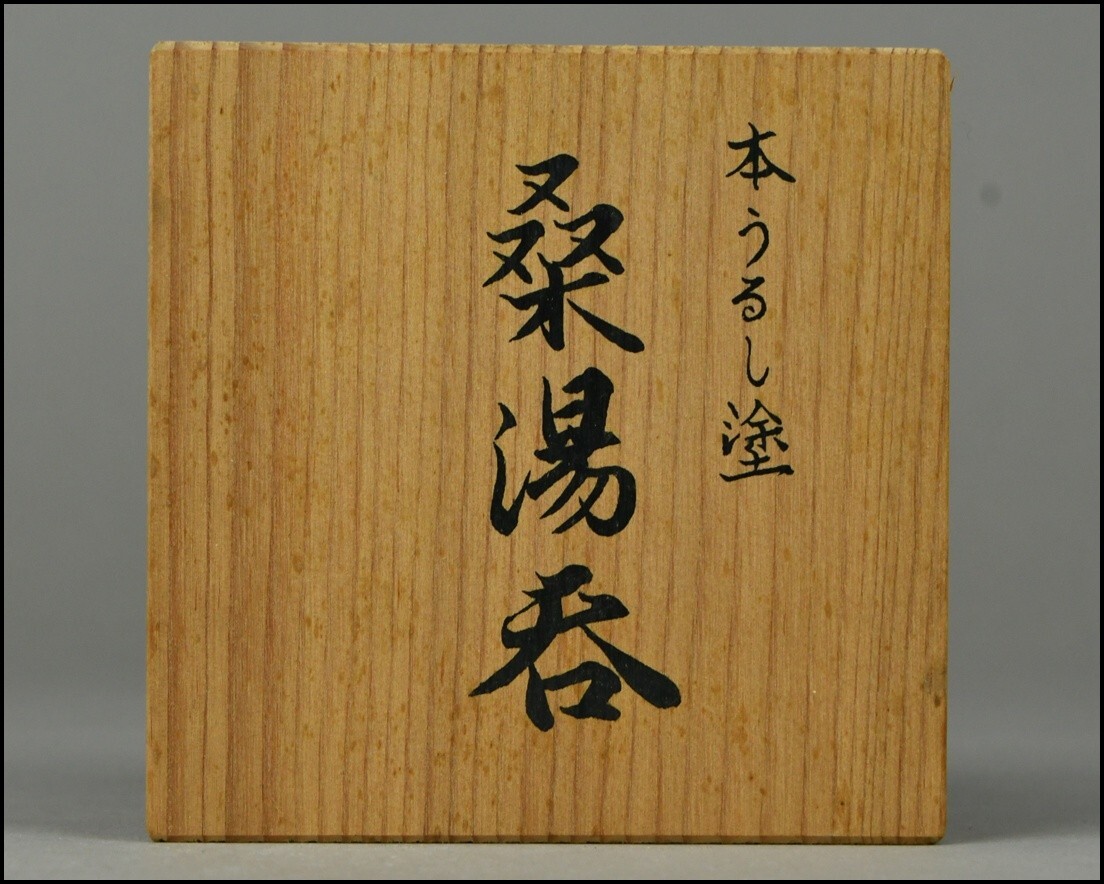 本うるし塗
桑湯呑